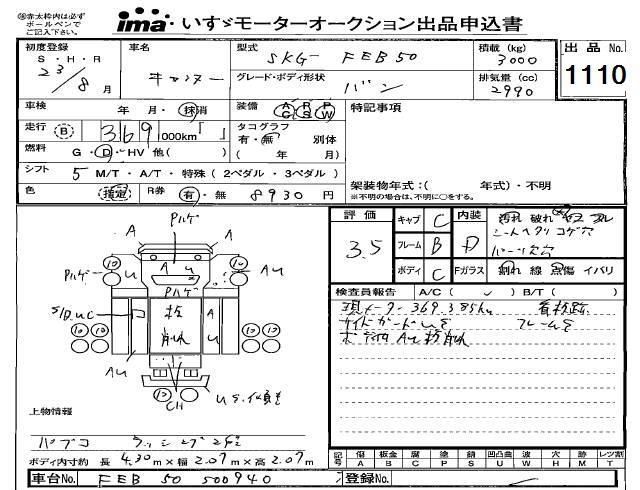 ㊟赤太枠内は必ず
ボールペンで
ご記入下さい。
ima いすゞモーターオークション出品申込書
初度登録 車名 型式 積載 (kg) 出 品 No.
S・H・R SKG- FEB50 3000
23/8月 キャンター グレード・ボディ形状 排気量 (cc) 1110
バン 2990
車検 年 月・抹消 装備 AC PS PW 特記事項
走行 B 369 000km「 」 タコグラフ
有・無 別体
燃料 G・D・HV 他( ) ( 年 月)
シフト 5 M/T・A/T・特殊 ( 2ペダル・3ペダル )
架装物年式:( 年式)・不明
色 指定 R券 有・無 8930 円 ※不明の場合は、不明に○をする。
評価 キャブ C 内装 汚れ 破れ
3.5 フレーム B D シートヘタリ コゲ穴
ボディ C Fガラス 割れ 線 点傷 イバリ
検査員報告 A/C ( ) B/T ( )
現メーター369,385km 看板跡
サイドガードUS フレームS
ボデイ内AU板削れ
Pハゲ
A A
10 10
Pハゲ A U AU
Pハゲ
S/D UC 板 A
10 削れ U 10
AU
10 10
CH
上物情報
パブコ ラッシング2段
ボディ内寸約 長 4.30m×幅 2.07m×高 2.07m
記号 傷 板金 腐 塗 錆 凹凸曲 波 穴 跡 レンズ割
A B C P S U W H M T
車台No. FEB50 500940 登録No.